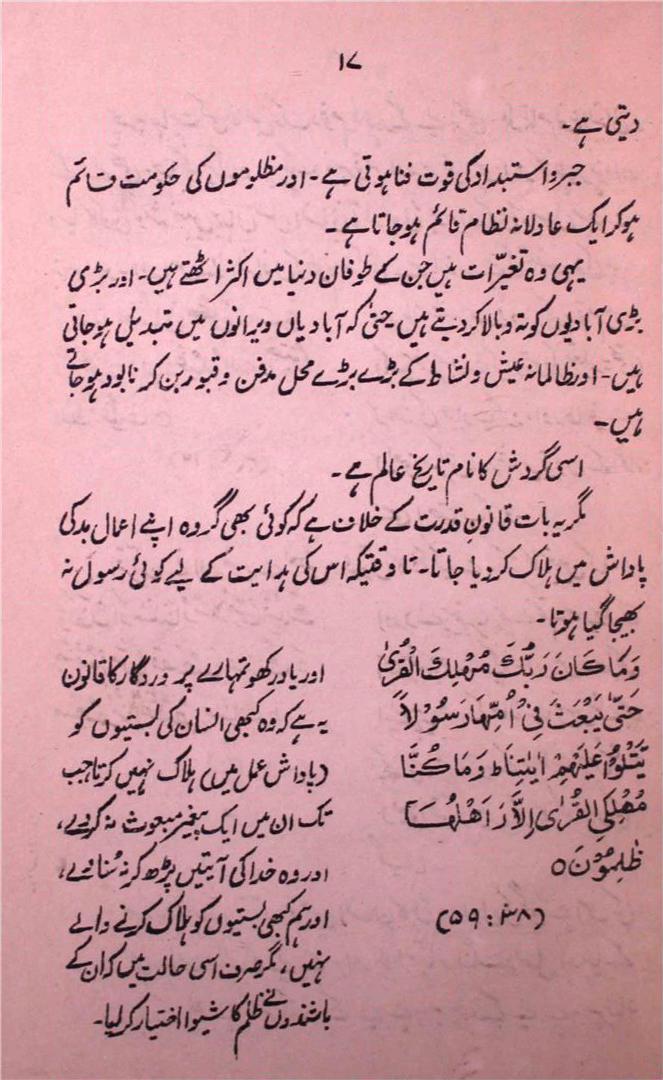 ۱۷
دیتی ہے۔
جبر و استبداد کی قوت فنا ہوتی ہے۔ اور مظلوموں کی حکومت قائم
ہوکر ایک عادلانہ نظام قائم ہوجاتا ہے۔
یہی وہ تغیّرات ہیں جن کے طوفان دنیا میں اکثر اٹھتے ہیں۔ اور بڑی
بڑی آبادیوں کو تہ و بالا کر دیتے ہیں حتیٰ کہ آبادیاں ویرانوں میں تبدیل ہوجاتی
ہیں۔ اور ظالمانہ عیش و نشاط کے بڑے بڑے محل مدفن و قبور بن کر نابود ہوجاتے
ہیں۔
اسی گردش کا نام تاریخ عالم ہے۔
مگر یہ بات قانونِ قدرت کے خلاف ہے کہ کوئی بھی گروہ اپنے اعمال بد کی
پاداش میں ہلاک کر دیا جاتا۔ تا وقتیکہ اس کی ہدایت کے لیے کوئی رسول نہ
بھیجا گیا ہوتا۔
وَمَا كَانَ رَبُّكَ مُهْلِكَ الْقُرٰى
حَتّٰى يَبْعَثَ فِىْۤ اُمِّهَا رَسُوْلًا
يَّتْلُوْا عَلَيْهِمْ اٰيٰتِنَا ط وَمَا كُنَّا
مُهْلِكِى الْقُرٰى اِلَّا وَ اَهْلُهَا
ظٰلِمُوْنَ ○
(۲۸ : ۵۹)
اور یاد رکھو تمہارے پروردگار کا قانون
یہ ہے کہ وہ کبھی انسان کی بستیوں کو
(پاداش عمل میں) ہلاک نہیں کرتا جب
تک ان میں ایک پیغمبر مبعوث نہ کر دے،
اور وہ خدا کی آیتیں پڑھ کر نہ سُنا دے،
اور ہم کبھی بستیوں کو ہلاک کرنے والے
نہیں، مگر صرف اسی حالت میں کہ ان کے
باشندوں نے ظلم کا شیوا اختیار کر لیا۔